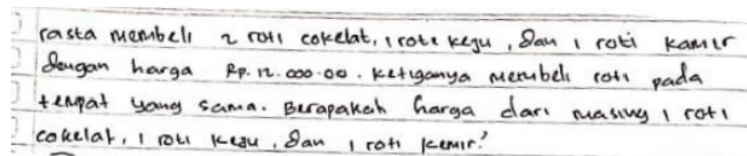 rasta membeli 2 roti cokelat, 1 roti keju, dan 1 roti kamir
dengan harga Rp. 12.000.00. Ketiganya membeli roti pada
tempat yang sama. Berapakah harga dari masing 1 roti
cokelat, 1 roti keju, dan 1 roti kemir?